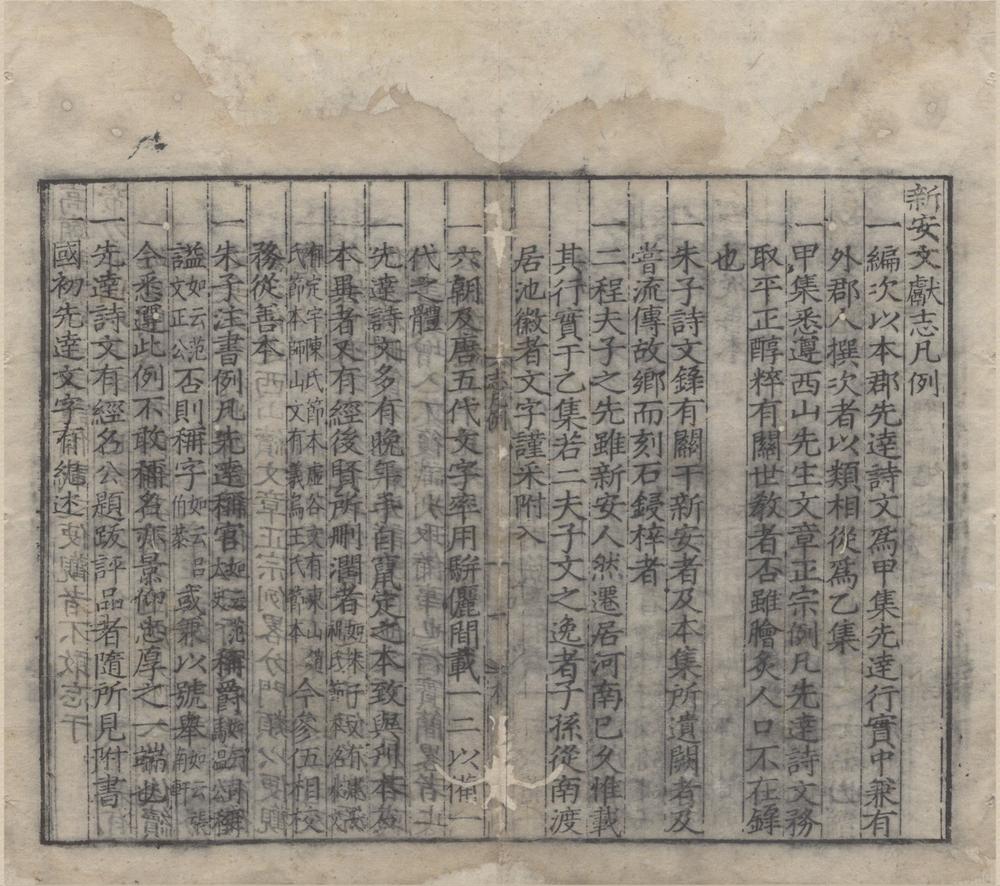 新安文獻志凡例
一編次以本郡先達詩文爲甲集先達行實中兼有
外郡人撰次者以類相從爲乙集
一甲集悉遵西山先生文章正宗例凡先達詩文務
取平正醇粹有關世敎者否雖膾炙人口不在錄
也
一朱子詩文錄有關于新安者及本集所遺闕者及
嘗流傳故鄉而刻石鋟梓者
一二程夫子之先雖新安人然遷居河南已久惟載
其行實于乙集若二夫子文之逸者子孫從南渡
居池徽者文字謹采附入
一六朝及唐五代文字率用駢儷間載一二以備一
代之體
一先達詩文多有晚年手自竄定之本致與刊本爲
本異者又有經後賢所刪潤者如朱子
定宇陳氏節本虛谷文有東山
氏節本師山文有義烏王氏
今參伍相校
務從善本
一朱子注書例凡先達稱官如云范太史稱爵
謚如云范文正公否則稱字如云呂伯恭或兼以號舉如云張南軒
今悉遵此例不敢稱名亦景仰忠厚之一端也
一先達詩文有經名公題跋評品者隨所見附書
一國初先達文字有繼述